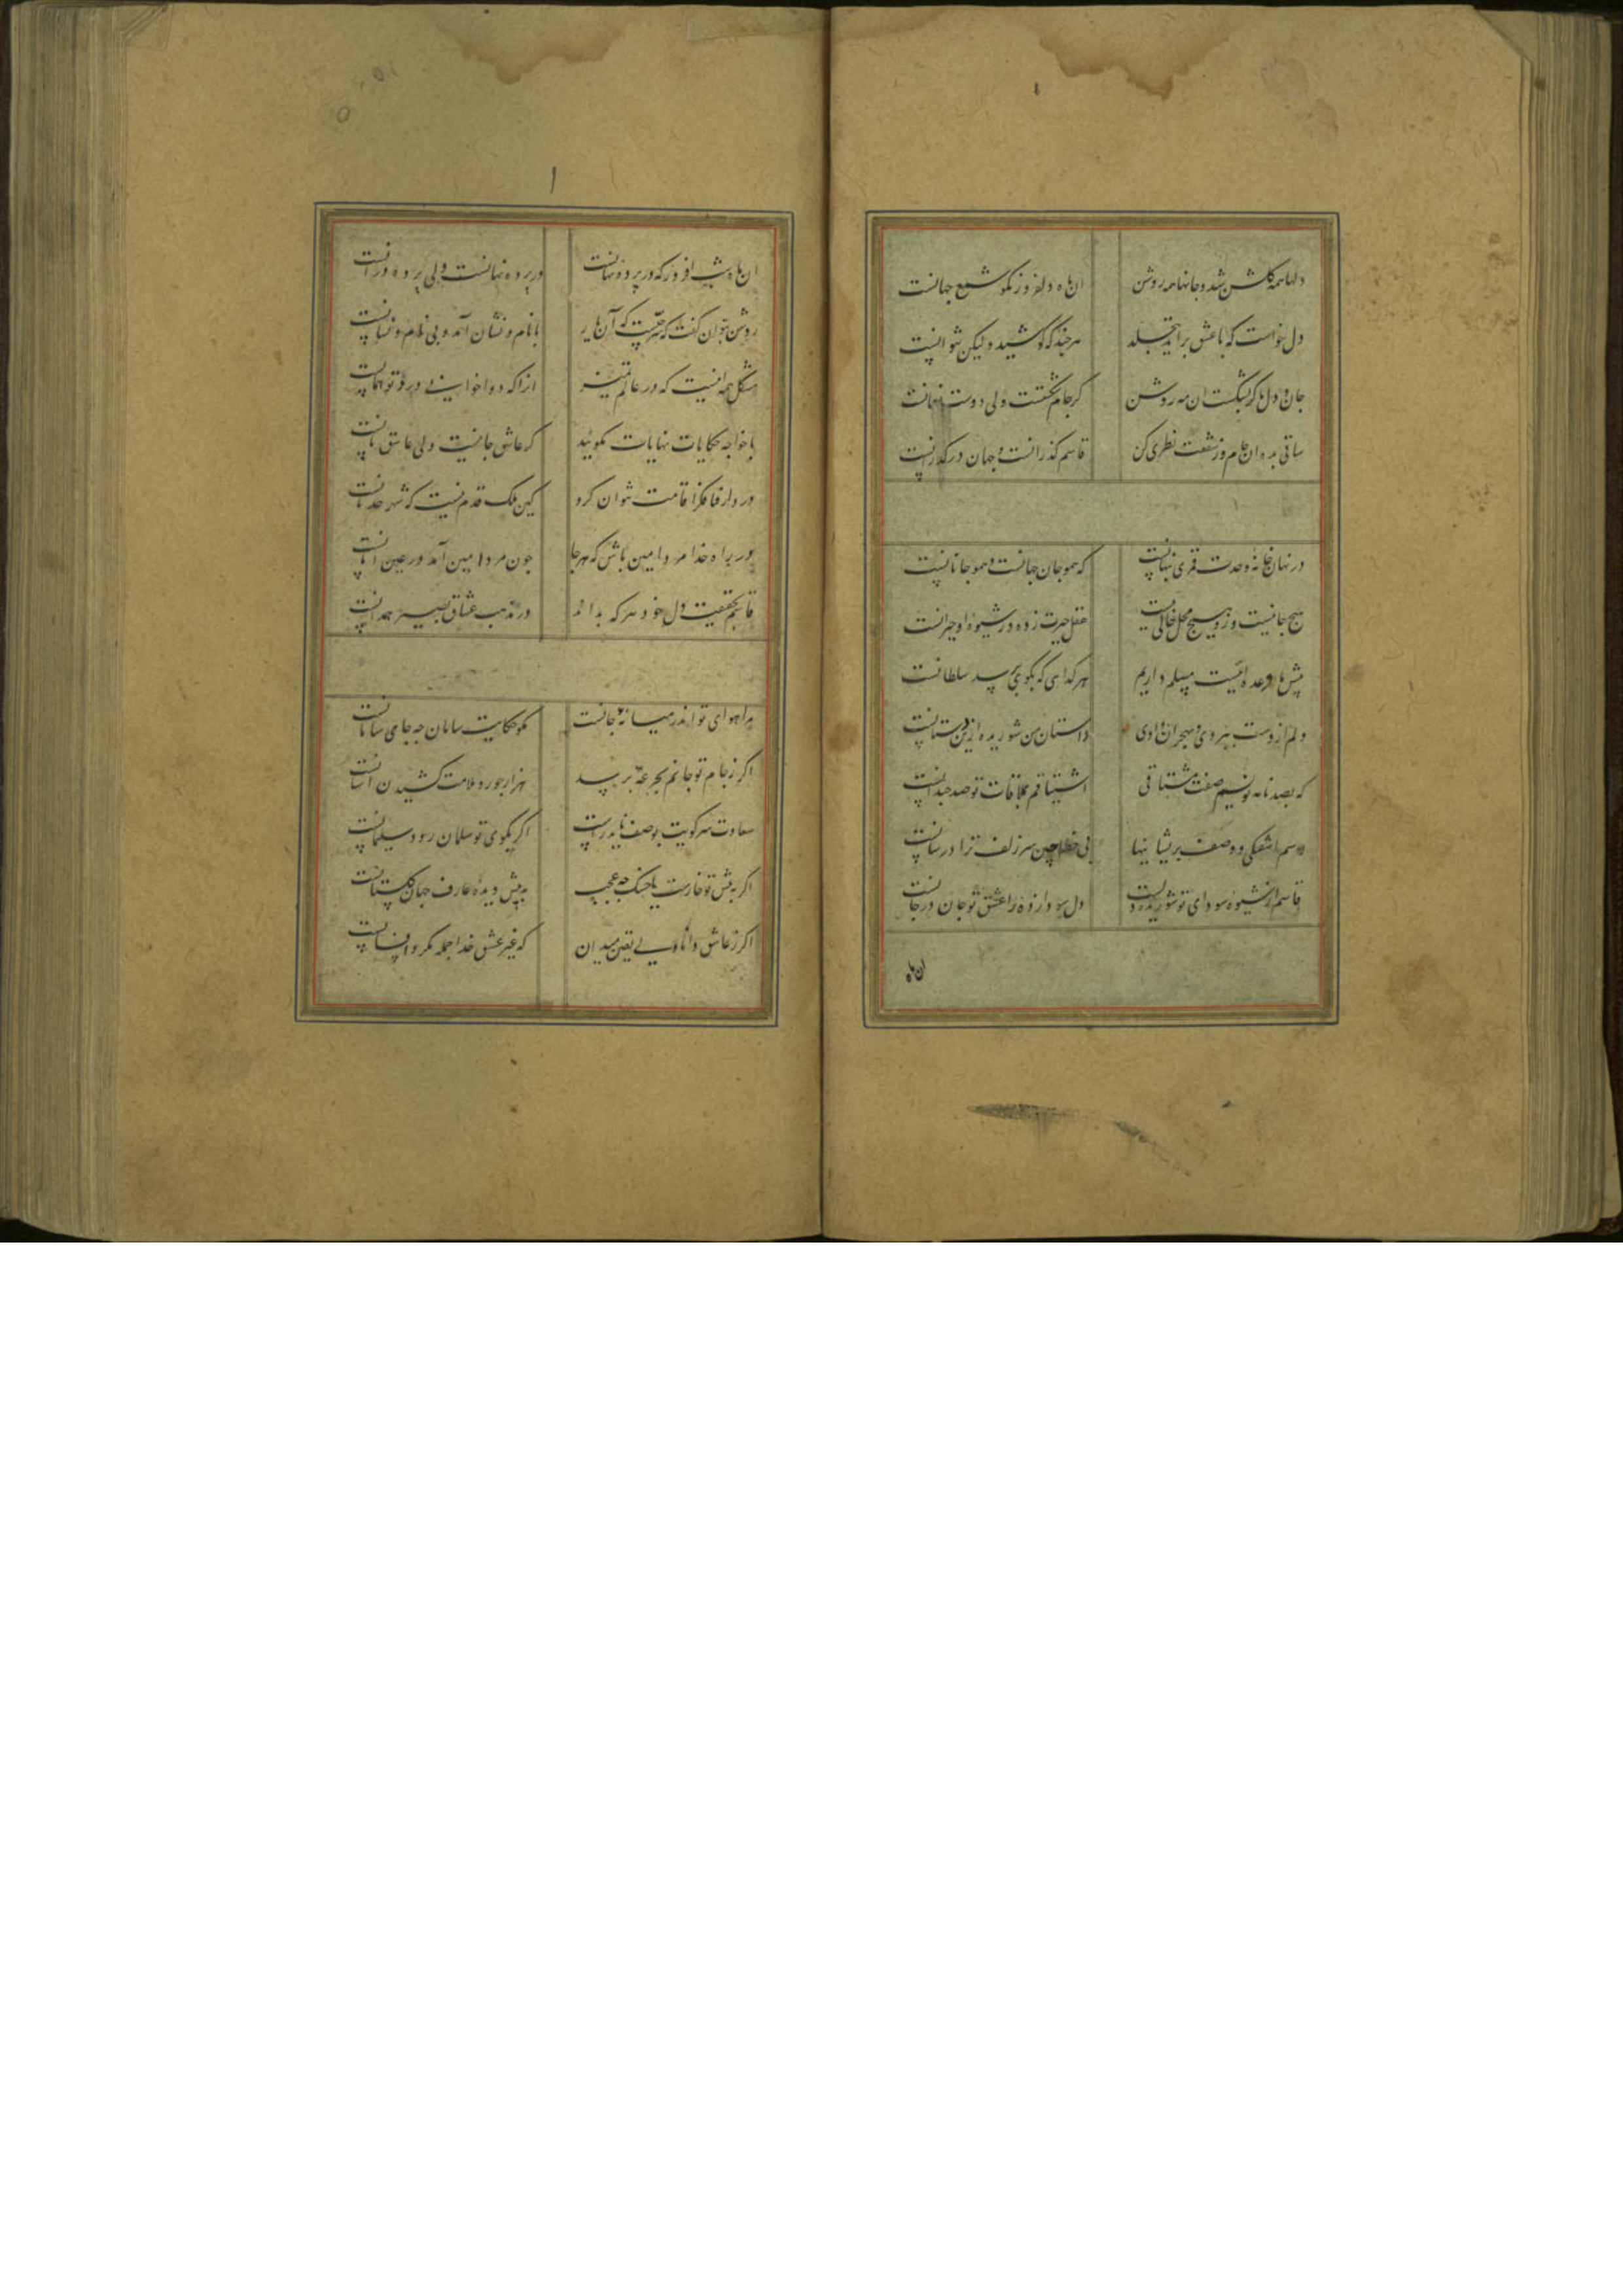 دلها همه گلشن شد و جانها همه روشن
ان ماه دلفروز نکو شمع جهانست
دل خواست که با عشق براید
هر چند که کوشید و لیکن نتوانست
جان و دل ما کر بشکست ان مه روشن
کر جام شکست ولی دوست
ساقی بده ان جام و ز شفقت نظری کن
قاسم کذرانست و جهان در کذرانست
در نهان خانه وحدت قمری پنهانست
که همو جان جهانست و همو جانانست
هیچ جا نیست وزو هیچ محل خالی نیست
عقل حیرت زده در شیوه او حیرانست
پیش ما وعده مسلم داریم
هر کدایی که بکوی تو رسد سلطانست
دلم از دست ببردی و بهجران دادی
داستان من شوریده ازین دستانست
که بصد نامه نویسم صفت مشتاقی
اشتیاقم بملاقات تو صد چندانست
رسم اشفتکی و وصف پریشانیها
بی خطا چین سر زلف ترا در شانست
قاسم از شیوه سودای تو شوریده
دل سودازده را عشق تو جان در جانست
ان ماه
ان ماه شب افروز که در پرده نهانست
در پرده نهانست ولی پرده درانست
روشن نتوان کفت که سریست که آن یار
با نام و نشان آمد و بی نام و نشانست
مشکل همه اینست که در عالم تمییز
انرا که دوا خوانی و درد تو همانست
با خواجه حکایات نهایات مکویید
کر عاشق جان نیست ولی عاشق نانست
در دار فنا فکر اقامت نتوان کرد
کین ملک قدم نیست که شهر حدثانست
در راه خدا مرد امین باش که هر جا
چون مرد امین آمد در عین امانست
قاسم بحقیقت دل خود هر که بداند
در مذهب عشاق بصیر همه دانست
مرا هوای تو اندر میانه جانست
مکو حکایت سامان چه جای سامانست
اکر ز جام تو جانم بجرعه برسد
هزار جور و ملامت کشیدن اسانست
سعادت سر کویت بوصف ناید راست
اکر بکوی تو سلمان رود سلیمانست
اکر به پیش تو خارست یا خسک چه عجب
به پیش دیده عارف جهان کلستانست
اکر ز عاشق دانا یقین میدان
که غیر عشق خدا جمله مکر و افسانست